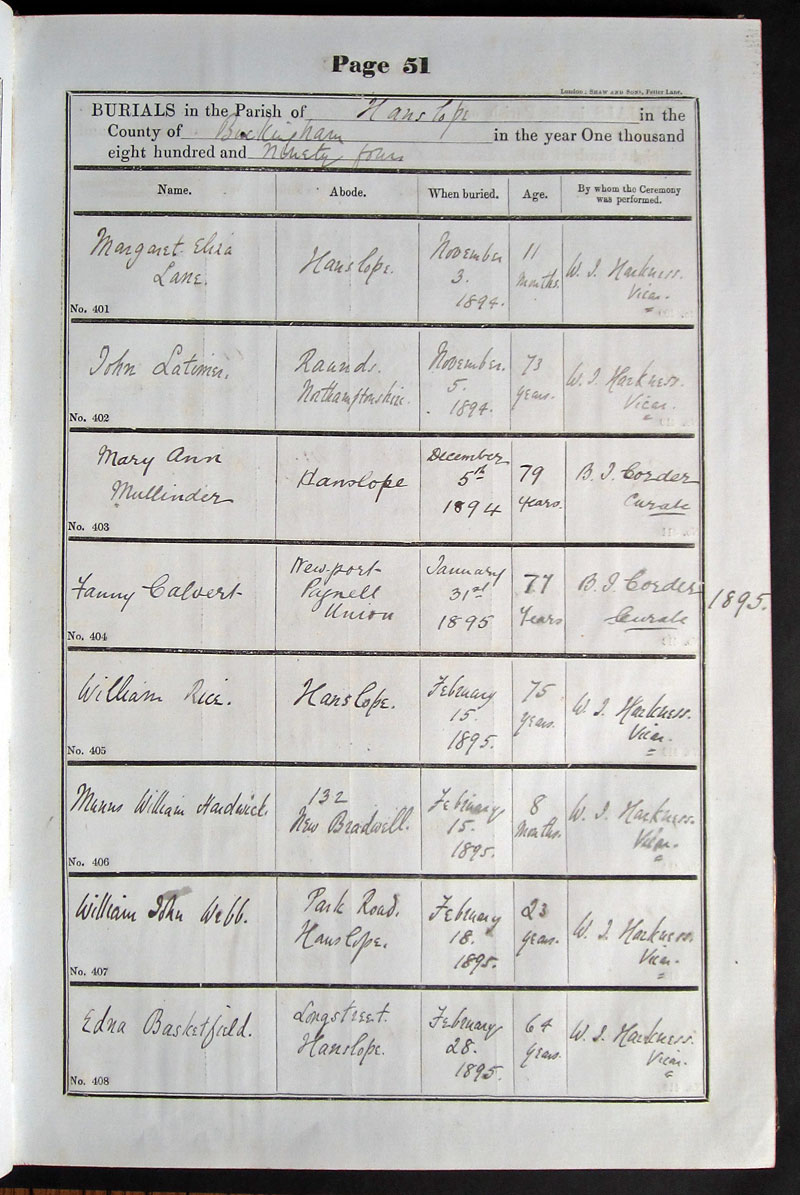 Page 51
London: SHAW AND SONS, Fetter Lane.
BURIALS in the Parish of Hanslope in the
County of Buckingham in the year One thousand
eight hundred and Ninety four
Name. Abode. When buried. Age. By whom the Ceremony was performed.
Margaret Eliza
Lane.
No. 401
Hanslope.
November
3.
1894.
11
Months.
W. J. Harkness.
Vicar.
John Latimer.
No. 402
Raunds.
Northamptonshire.
November.
5.
1894.
73
years.
W. J. Harkness.
Vicar.
Mary Ann
Mullinder
No. 403
Hanslope
December
5th
1894
79
Years.
B. J. Corder
Curate
Fanny Calvert
No. 404
Newport
Pagnell
Union
January
31st
1895
77
Years
B. J. Corder
Curate
1895.
William Rice.
No. 405
Hanslope.
February
15.
1895.
75
years.
W. J. Harkness.
Vicar.
Munns William Hardwick.
No. 406
132
New Bradwell.
February
15.
1895.
8
Months.
W. J. Harkness.
Vicar.
William John Webb.
No. 407
Park Road.
Hanslope.
February
18.
1895.
23
years.
W. J. Harkness.
Vicar.
Edna Basketfield.
No. 408
Longstreet.
Hanslope.
February
28.
1895.
64
years.
W. J. Harkness.
Vicar.